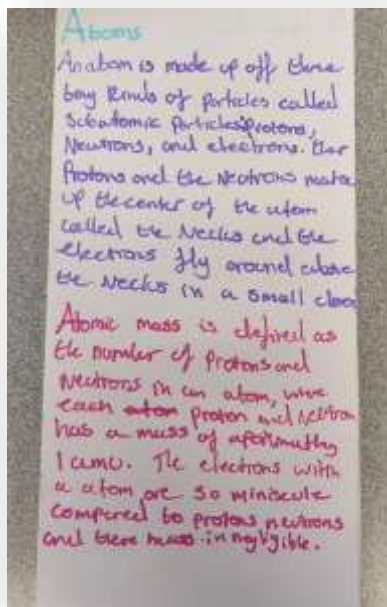 Atoms
An atom is made up off three
tiny kinds of particles called
Subatomic Particles: protons,
Neutrons, and electrons. the
Protons and the Neutrons make
up the center of the atom
called the Necks and the
electrons fly around above
the Necks in a small
Atomic mass is defined as
the number of Protons and
Neutrons in an atom, were
each proton and neutron
has a mass of
1 amu. The electrons with
a atom are so miniscule
compared to protons neutrons
and there mass is negligible.